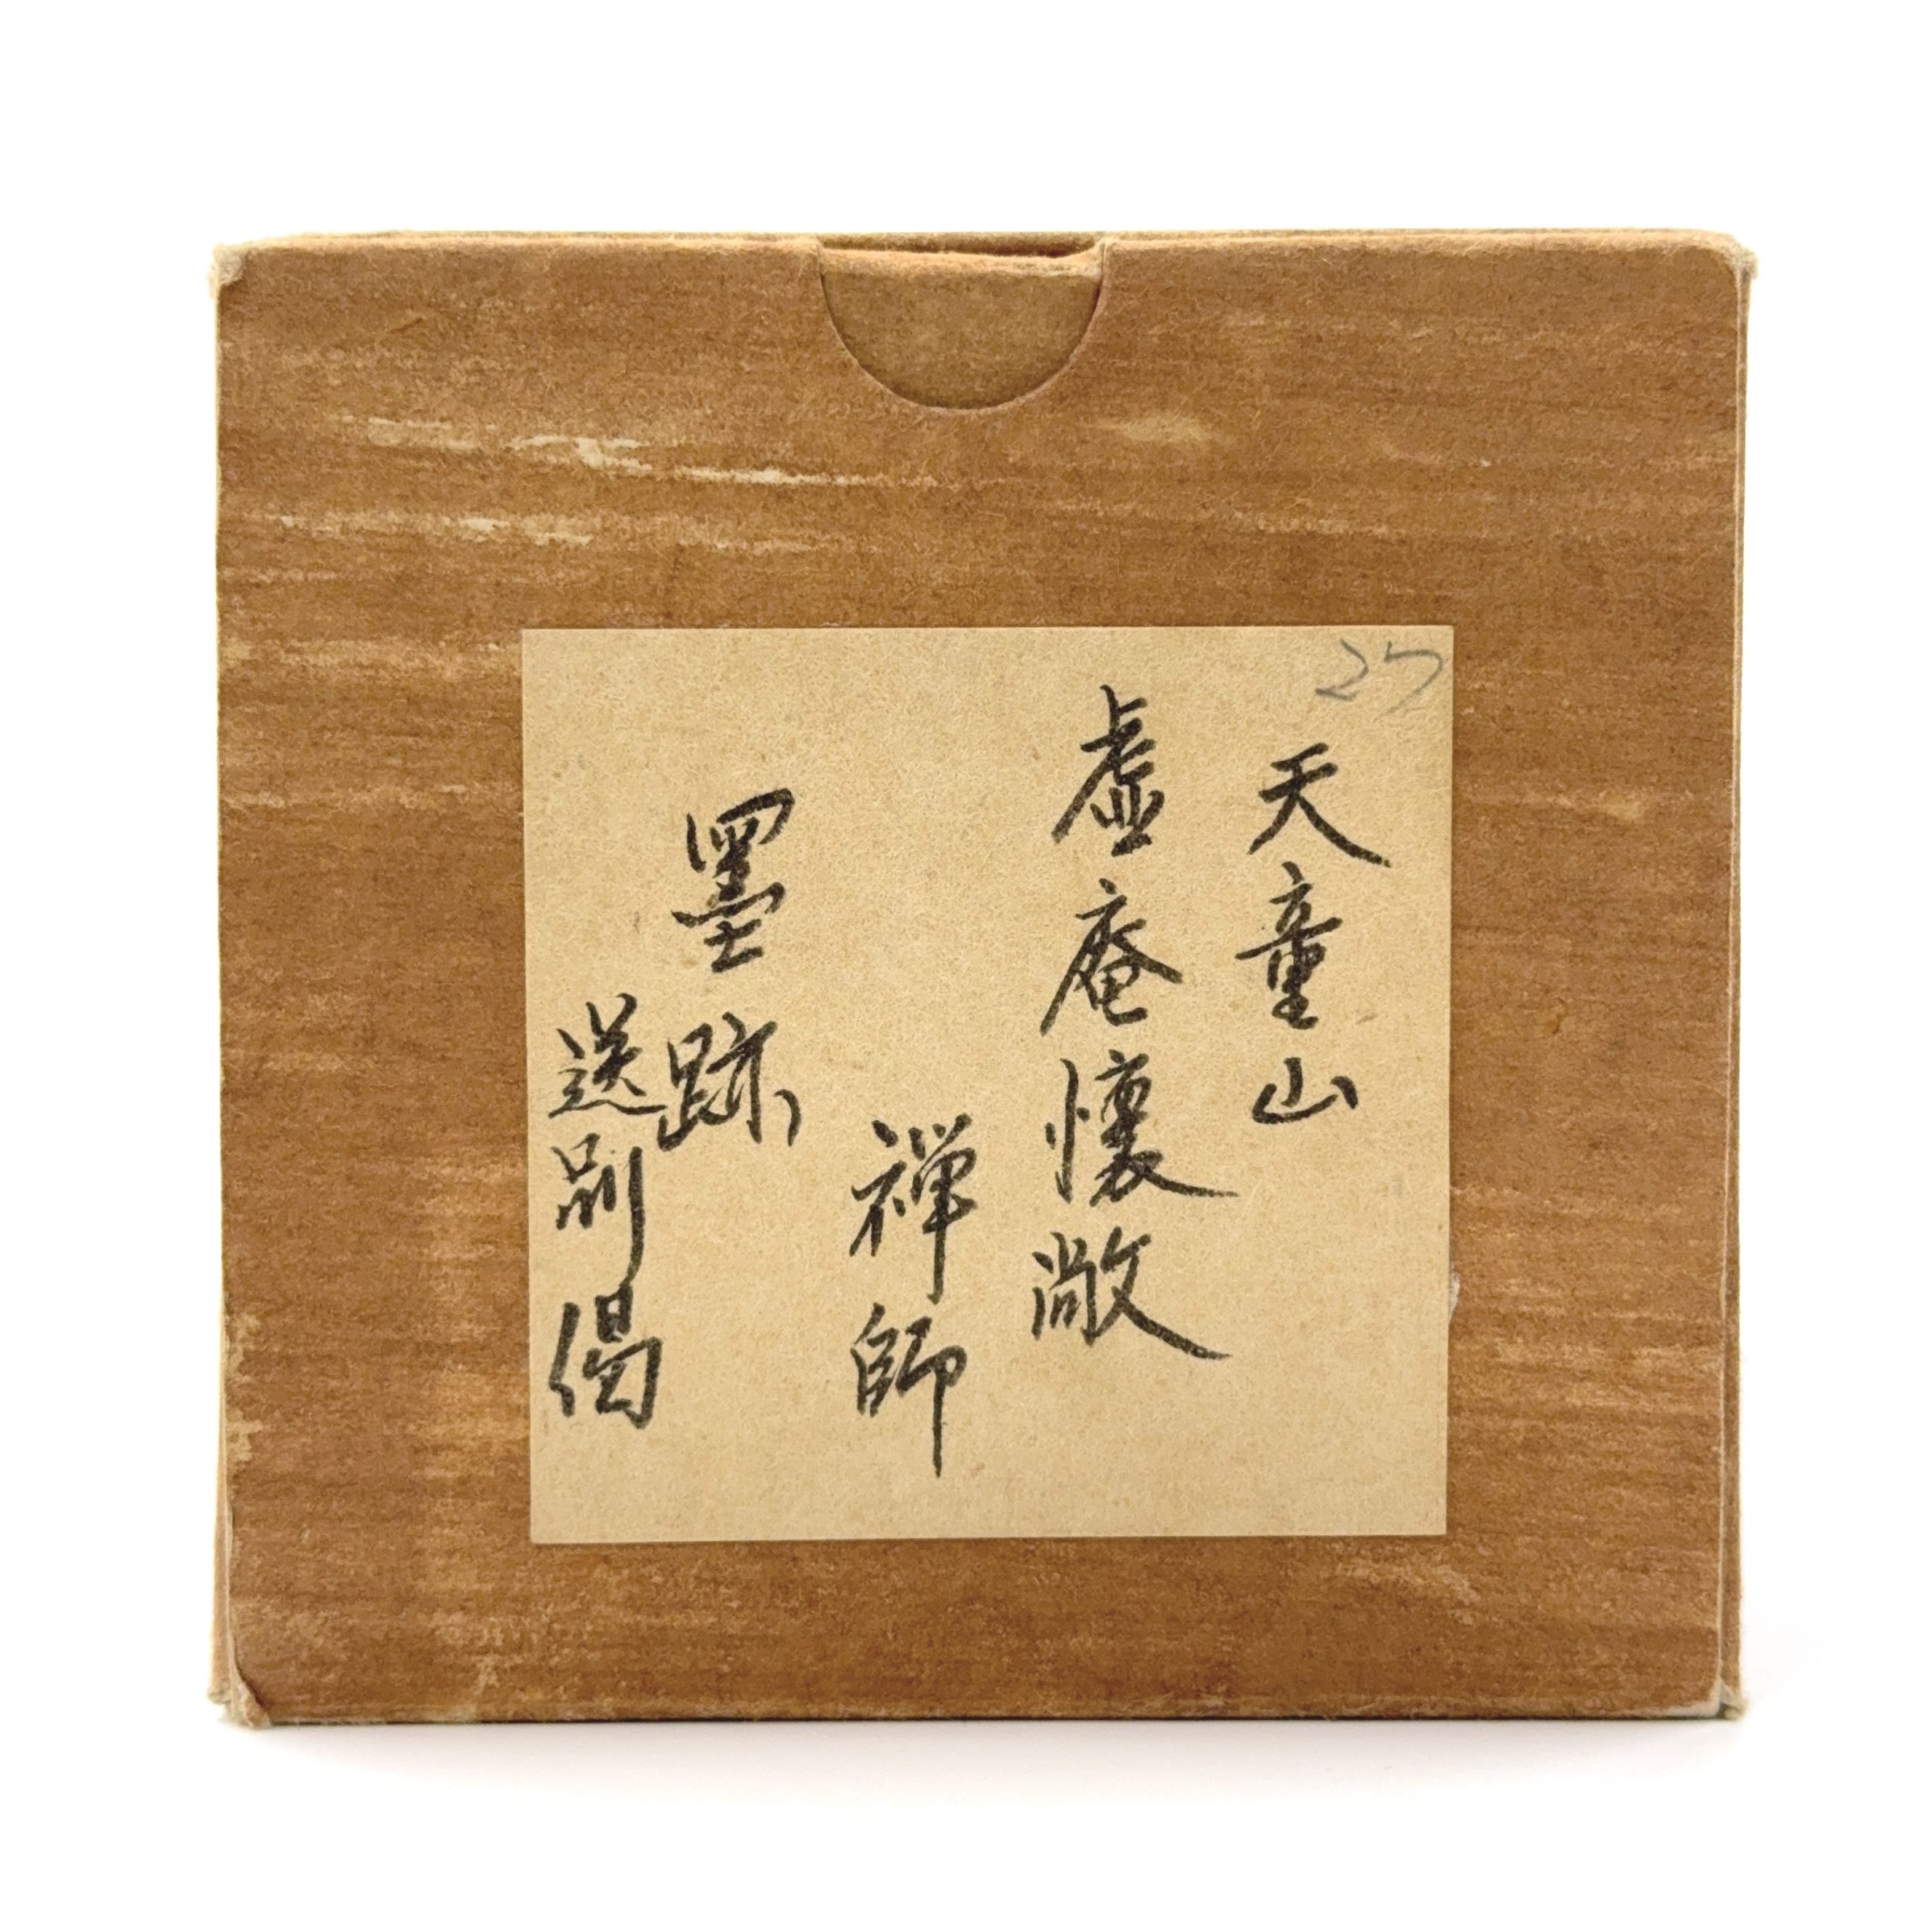 27
天童山
虚庵懐敞
禅師
墨跡
送別偈